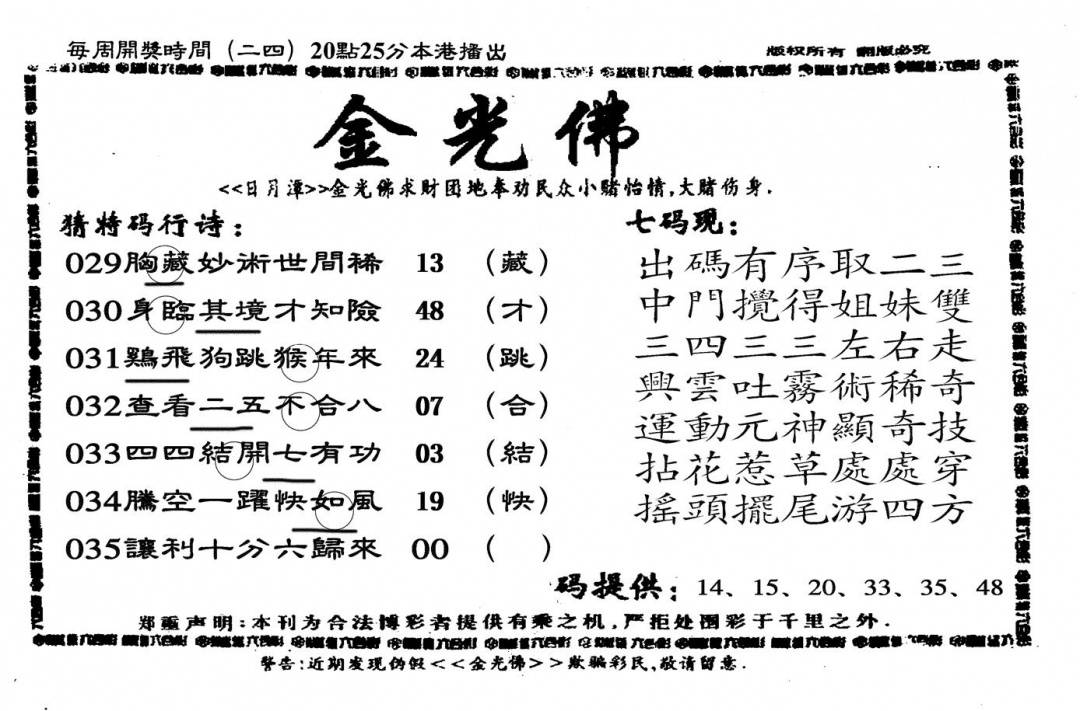 每周開獎時間（二四）20點25分本港播出
版权所有 翻版必究
金光佛
<<日月潭>>金光佛求财团地奉劝民众小赌怡情,大赌伤身.
猜特码行诗：
029胸藏妙術世間稀 13 （藏）
030身臨其境才知險 48 （才）
031鷄飛狗跳猴年來 24 （跳）
032查看二五不合八 07 （合）
033四四結開七有功 03 （結）
034騰空一躍快如風 19 （快）
035讓利十分六歸來 00 （ ）
七码现：
出碼有序取二三
中門攪得姐妹雙
三四三三左右走
興雲吐霧術稀奇
運動元神顯奇技
拈花惹草處處穿
摇頭擺尾游四方
码提供：14、15、20、33、35、48
郑重声明：本刊为合法博彩者提供有乘之机,严拒处图彩于千里之外.
警告:近期发现伪假<<金光佛>>欺骗彩民,敬请留意.